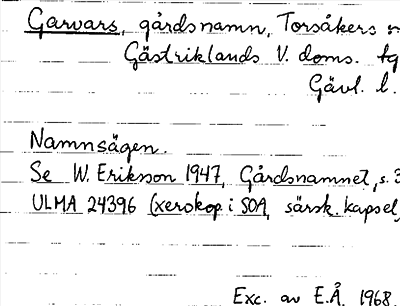 Garvars, gårdsnamn, Torsåkers
Gästriklands V. doms. tg
Gävl. l.
Namnsägen.
Se W. Eriksson 1947, Gårdsnamnet, s. 3
ULMA 24396 (xerokop. i SOA, särsk. kapsel)
Exc. av E.Å. 1968.